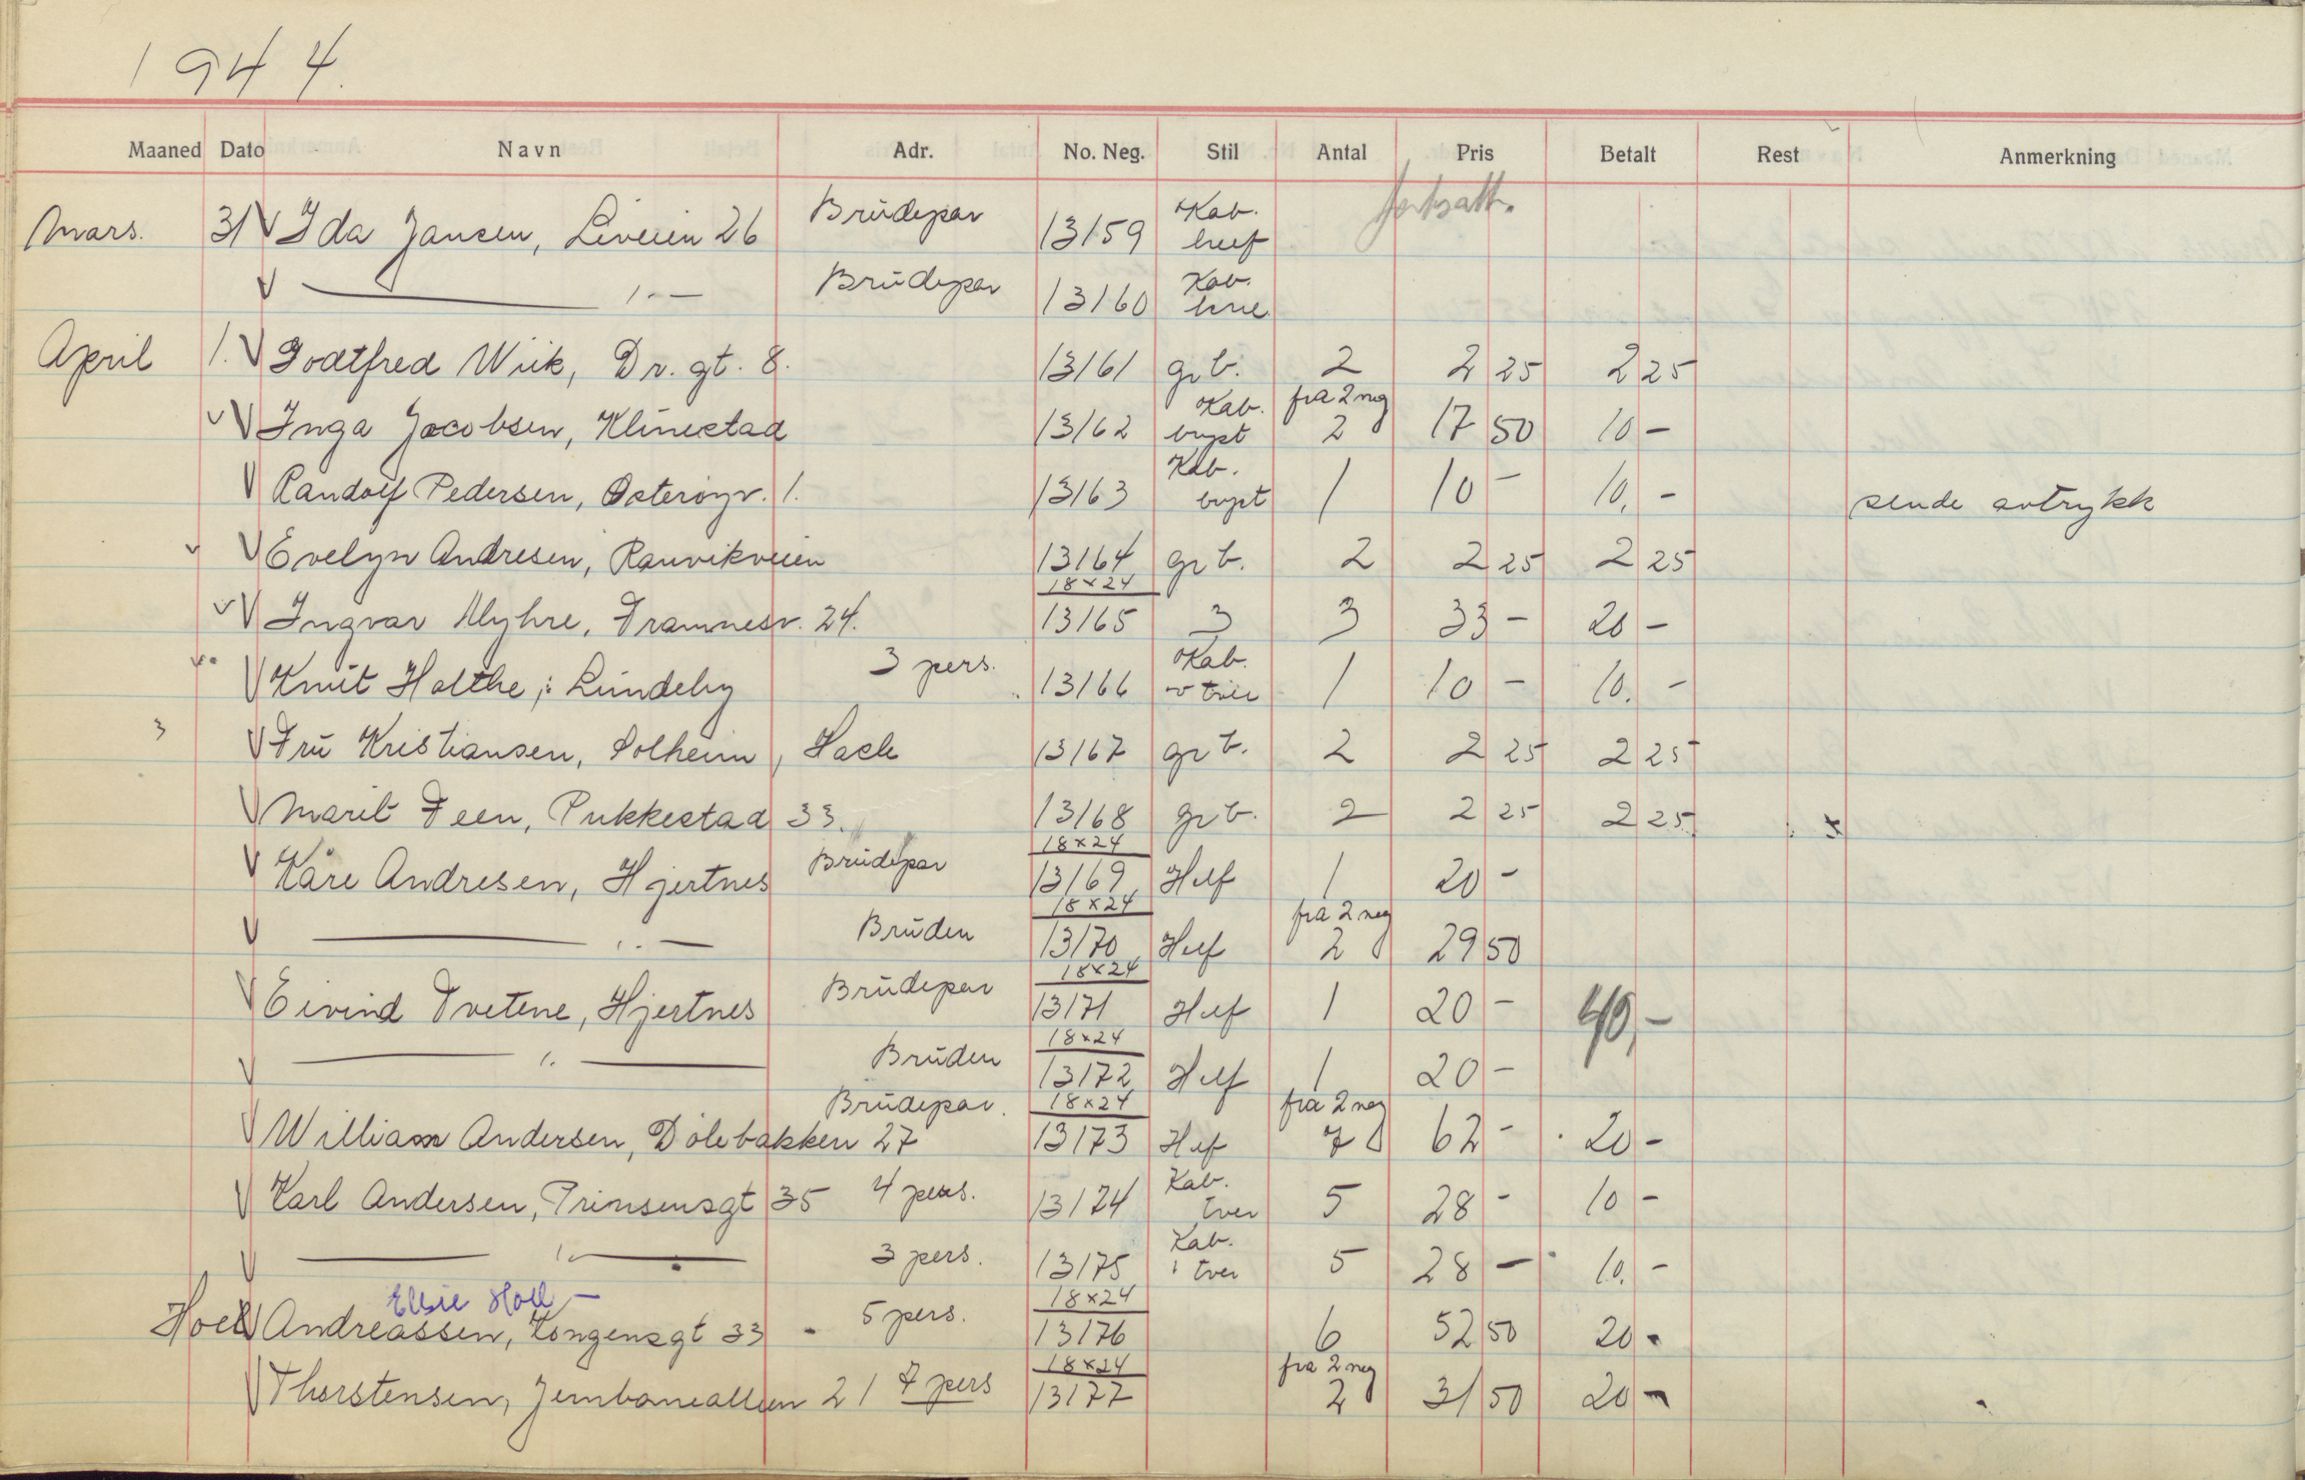 1944.
Maaned Dato Navn Adr. No. Neg. Stil Antal Pris Betalt Rest Anmerkning
Mars. 31 Ida Jansen, Liveien 26 Brudepar 13159 Kab. fortsatt.
—— " — Brudepar 13160 Kab.
April 1. Godtfred Wiik, Dr. gt. 8. 13161 gr b. 2 2 25 2 25
Inga Jacobsen, Klinestad 13162 Kab. bryst fra 2 neg 2 17 50 10 –
Randolf Pedersen, Østerøyv. 1. 13163 Kab. bryst 1 10 – 10, – sende avtrykk
Evelyn Andresen, Ranvikveien 13164 gr b. 2 2 25 2 25
Ingvar Myhre, Framnesv. 24. 18x24 13165 3 3 33 – 20 –
Knut Holthe, Lundeby 3 pers. 13166 Kab. tver 1 10 – 10. –
3 Fru Kristiansen, Solheim, Hasle 13167 gr b. 2 2 25 2 25
Marit Feen, Pukkestad 33. 13168 gr b. 2 2 25 2 25
Kåre Andresen, Hjertnes Brudepar 18x24 13169 Helf 1 20 –
—— " — Bruden 18x24 13170 Helf fra 2 neg 2 29 50
Eivind Tvetene, Hjertnes Brudepar 18x24 13171 Helf 1 20 – 40,–
—— " —— Bruden 18x24 13172 Helf 1 20 –
William Andersen, Dølebakken 27 Brudepar. 18x24 13173 Helf fra 2 neg 7 62 – 20 –
Karl Andersen, Prinsensgt 35 4 pers. 13174 Kab. tver 5 28 – 10 –
—— " —— 3 pers. 13175 Kab. tver 5 28 – 10. –
Ellsie Hoel –
Hoel Andreassen, Kongensgt 33 - 5 pers. 18x24 13176 6 52 50 20 -
Thorstensen, Jernbanealleen 21 7 pers 18x24 13177 fra 2 neg 2 31 50 20 –